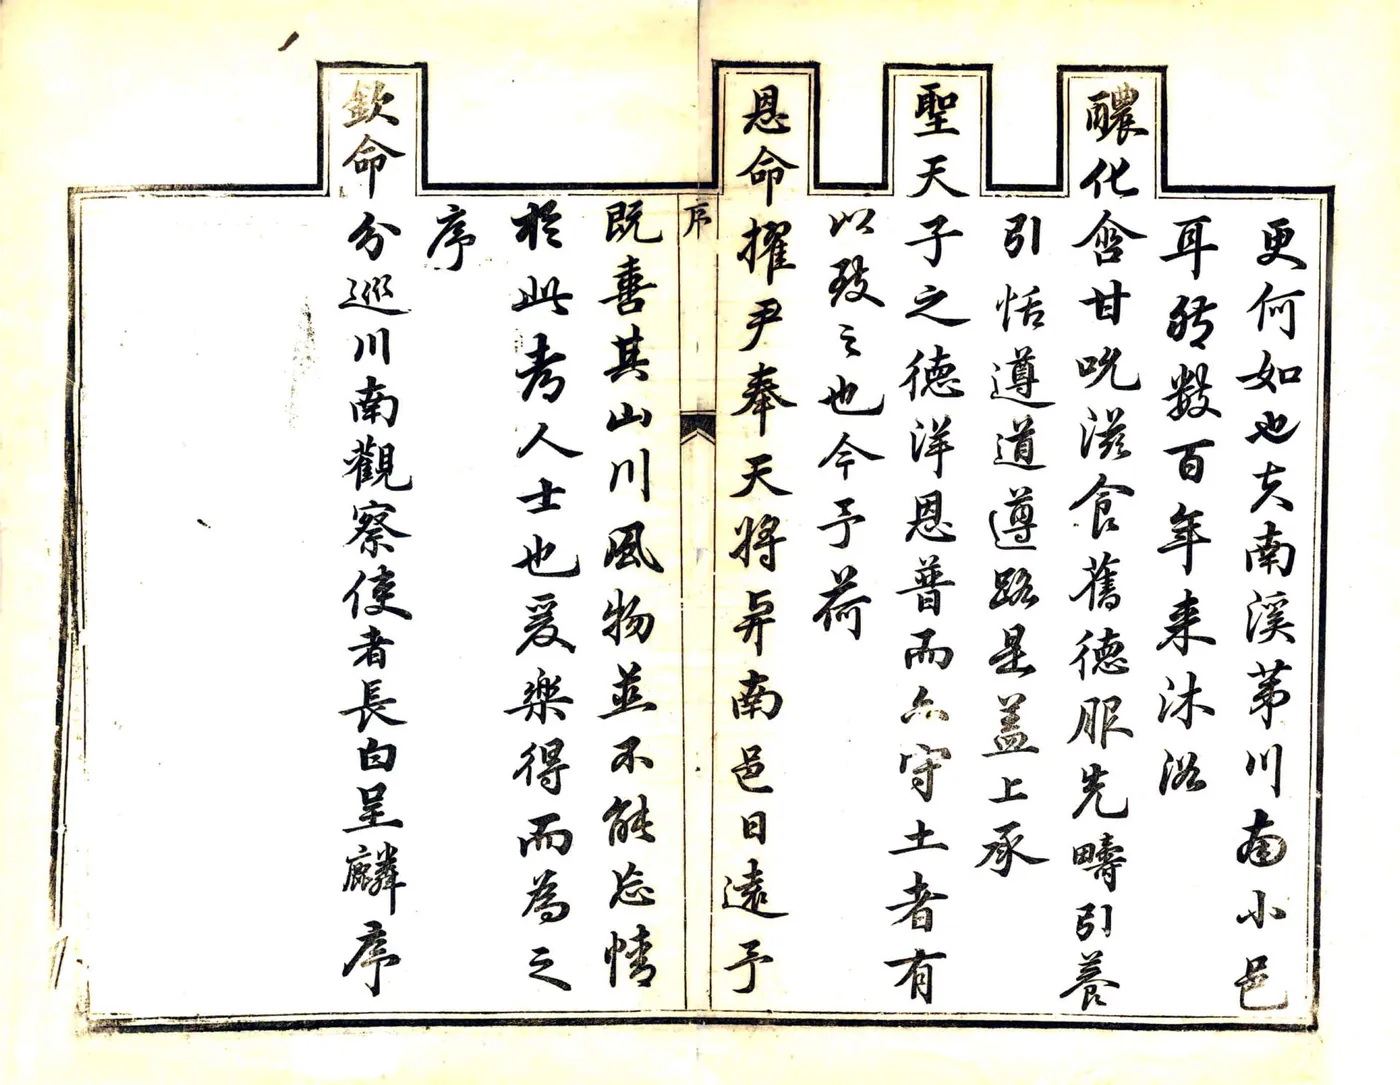 更何如也夫南溪苐川南小邑
耳然数百年来沐浴
醲化含甘吮滋食舊德服先疇引養
引恬遵道遵路是蓋上承
聖天子之德洋恩普而亦守土者有
以致之也今予荷
恩命擢尹奉天將與南邑日遠予
序
既善其山川風物並不能忘情
於此考人士也爰樂得而為之
序
欽命分巡川南觀察使者長白呈麟序